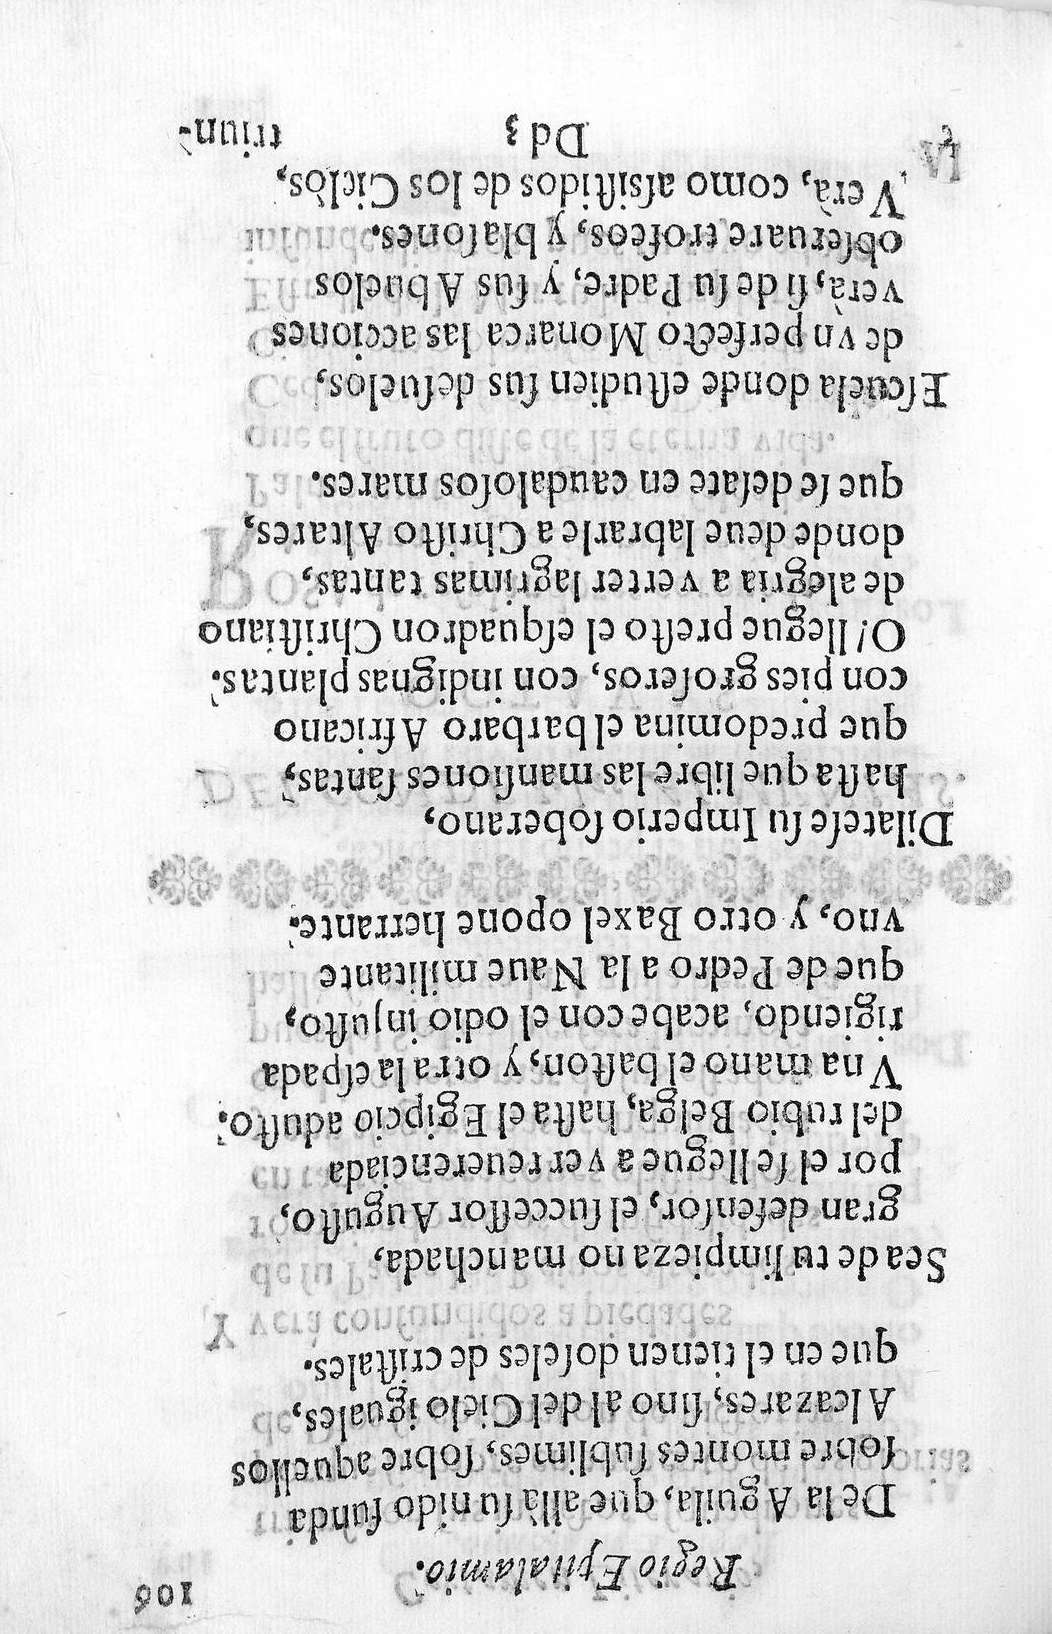 106
Regio Epitalamio.
De la Aguila, que allà ſu nido funda
ſobre montes ſublimes, ſobre aquellos
Alcazares, ſino al del Cielo iguales,
que en el tienen doſeles de criſtales.
Sea de tu limpieza no manchada,
gran defenſor, el ſucceſſor Auguſto,
por el ſe llegue a ver reuerenciada
del rubio Belga, haſta el Egipcio aduſto.
Vna mano el baſton, y otra la eſpada
rigiendo, acabe con el odio injuſto,
que de Pedro a la Naue militante
vno, y otro Baxel opone herrante.
Dilateſe ſu Imperio ſoberano,
haſta que libre las manſiones ſantas,
que predomina el barbaro Africano
con pies groſeros, con indignas plantas.
O! llegue preſto el eſquadron Chriſtiano
de alegria a verter lagrimas tantas,
donde deue labrarle a Chriſto Altares,
que ſe deſate en caudaloſos mares.
Eſcuela donde eſtudien ſus deſuelos,
de vn perfecto Monarca las acciones
verà, ſi de ſu Padre, y ſus Abuelos
obſeruare trofeos, y blaſones.
Verà, como aſsiſtidos de los Cielos,
Dd 3
triun-